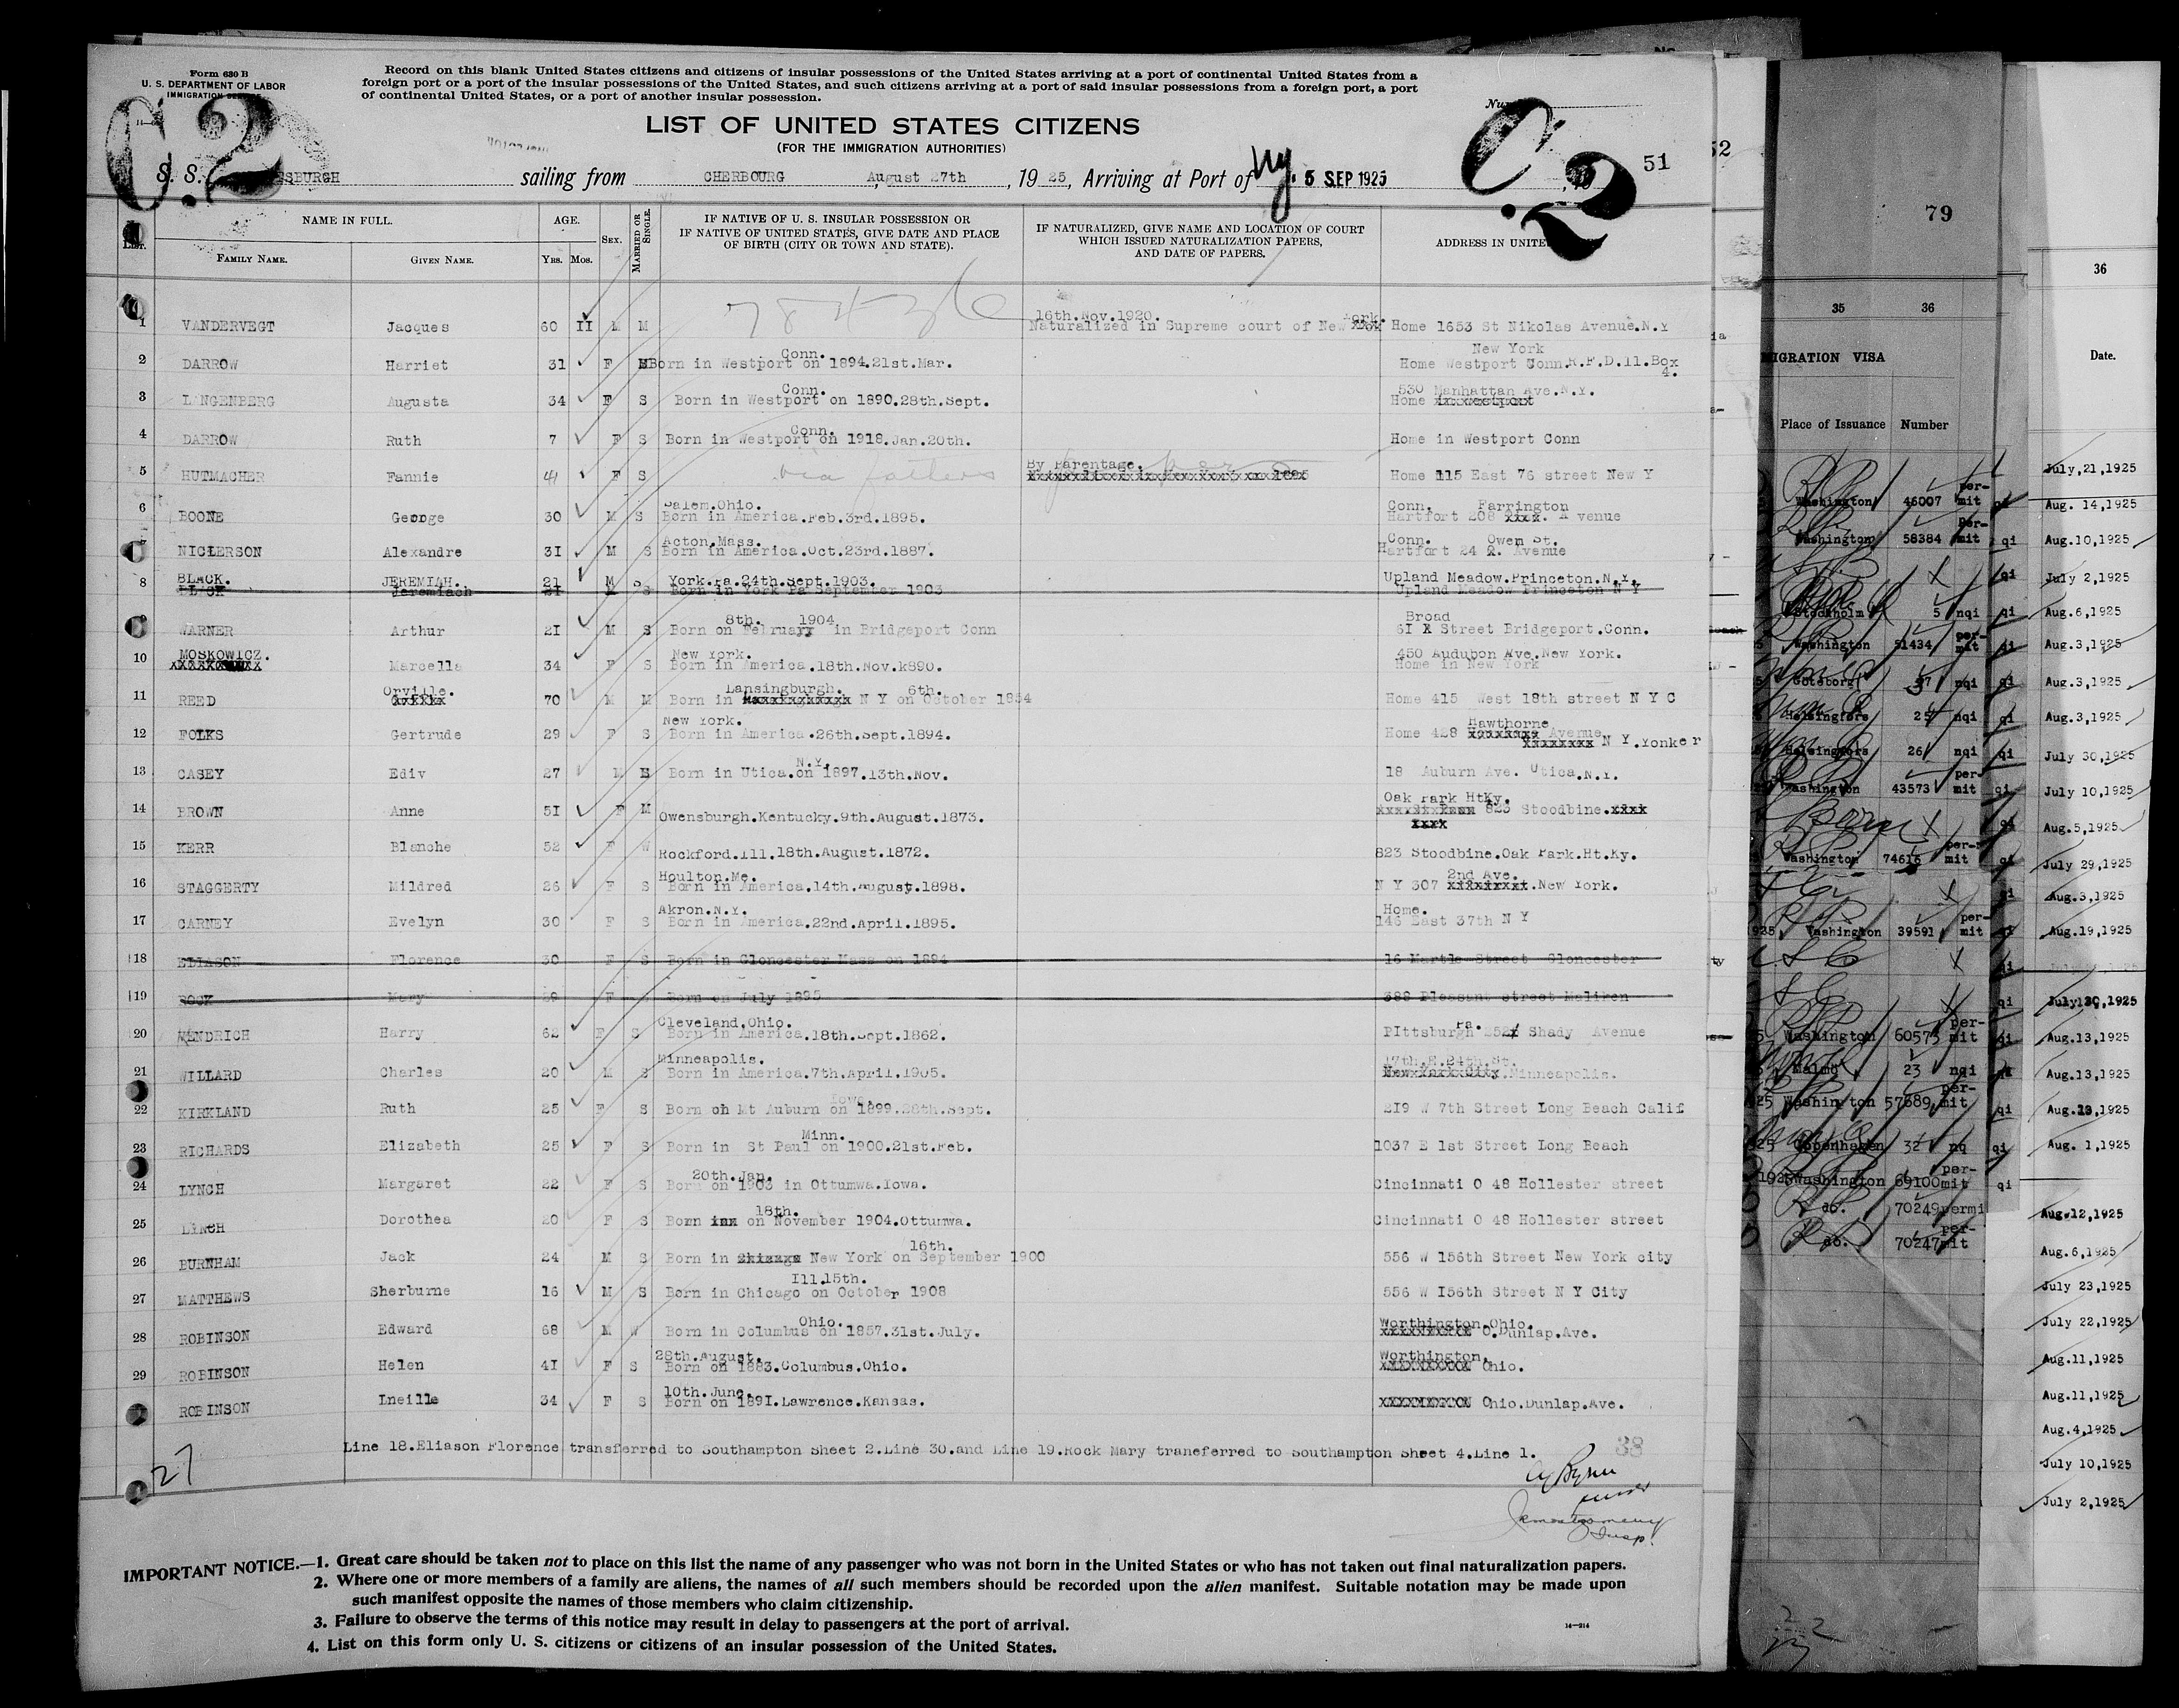 Form 630 B
U. S. DEPARTMENT OF LABOR
IMMIGRATION
Record on this blank United States citizens and citizens of insular possessions of the United States arriving at a port of continental United States from a
foreign port or a port of the insular possessions of the United States, and such citizens arriving at a port of said insular possessions from a foreign port, a port
of continental United States, or a port of another insular possession.
C.2
C.2
LIST OF UNITED STATES CITIZENS
(FOR THE IMMIGRATION AUTHORITIES)
51
S. S. SBURGH sailing from CHERBOURG, August 27th, 19 25, Arriving at Port of NY. 5 SEP 1925
NAME IN FULL.
FAMILY NAME. GIVEN NAME.
AGE.
YRS. MOS.
SEX.
MARRIED OR SINGLE.
IF NATIVE OF U. S. INSULAR POSSESSION OR
IF NATIVE OF UNITED STATES, GIVE DATE AND PLACE
OF BIRTH (CITY OR TOWN AND STATE).
IF NATURALIZED, GIVE NAME AND LOCATION OF COURT
WHICH ISSUED NATURALIZATION PAPERS,
AND DATE OF PAPERS.
ADDRESS IN UNITE
16th.Nov.1920. York.
1 VANDERVEGT Jacques 60 II M M Naturalized in Supreme court of New Home 1653 St Nikolas Avenue.N.Y
Conn. New York
2 DARROW Harriet 31 F Born in Westport on 1894.21st.Mar. Home Westport Conn.R.F.D.11.Box
4.
Conn. 530 Manhattan Ave.N.Y.
3 LANGENBERG Augusta 34 F S Born in Westport on 1890.28th.Sept. Home
Conn.
4 DARROW Ruth 7 F S Born in Westport on 1918.Jan.20th. Home in Westport Conn
By Parentage.
5 HUTMACHER Fannie 41 F S via fathers Home 115 East 76 street New Y
Salem.Ohio. Conn. Farrington
6 BOONE George 30 M S Born in America.Feb.3rd.1895. Hartfort 208 A venue
Acton.Mass. Conn. Owen St.
7 NICLERSON Alexandre 3I M S Born in America.Oct.23rd.1887. Hartfort 24 Avenue
8 BLACK. JEREMIAH. 21 M S York.Pa.24th.Sept.1903. Upland Meadow.Princeton.N.Y.
BLACK Jeremiach 21 M S Born in York Pa September 1903 Upland Meadow Princeton N Y
8th. 1904 Broad
9 WARNER Arthur 2I M S Born on February in Bridgeport Conn 6I Street Bridgeport.Conn.
MOSKOWICZ. New York. 450 Audubon Ave.New York.
10 Marcella 34 F S Born in America.18th.Nov.k890. Home in New York
Orville. Lansingburgh. 6th.
11 REED 70 M M Born in N Y on October 1854 Home 415 West 18th street N Y C
New York. Hawthorne
12 FOLKS Gertrude 29 F S Born in America.26th.Sept.1894. Home 428 Avenue
N Y.Yonker
N.Y.
13 CASEY Ediv 27 M Born in Utica.on 1897.13th.Nov. 18 Auburn Ave. Utica.N.Y.
Oak Park HtKy.
14 BROWN Anne 5I F M Owensburgh.Kentucky.9th.August.1873. 823 Stoodbine.
15 KERR Blanche 52 F W Rockford.Ill.18th.August.1872. 823 Stoodbine.Oak Park.Ht.Ky.
Houlton.Me. 2nd Ave.
16 STAGGERTY Mildred 26 F S Born in America.14th.August.1898. N Y 307 .New York.
Akron.N.Y. Home.
17 CARNEY Evelyn 30 F S Born in America.22nd.April.1895. 146 East 37th N Y
18 ELIASON Florence 30 F S Born in Gloncester Mass on 1894 16 Martle Street Gloncester
19 ROCK Mary 29 F Born on July 1895 388 Pleasant street Maliken
Cleveland,Ohio. Pa.
20 WENDRICH Harry 62 F S Born in America.18th.Sept.1862. PIttsburgh Shady Avenue
Minneapolis. 17th.E.24th.St.
21 WILLARD Charles 20 M S Born in America.7th.April.1905. New York City.Minneapolis.
Iowa.
22 KIRKLAND Ruth 25 F S Born oh Mt Auburn on 1899.28th.Sept. 2I9 W 7th Street Long Beach Calif
Minn.
23 RICHARDS Elizabeth 25 F S Born in St Paul on 1900.21st.Feb. 1037 E 1st Street Long Beach
20th.Jan.
24 LYNCH Margaret 22 F S Born on 1903 in Ottumwa.Iowa. Cincinnati O 48 Hollester street
18th.
25 LYNCH Dorothea 20 F S Born on November 1904.Ottumwa. Cincinnati O 48 Hollester street
16th.
26 BURNHAM Jack 24 M S Born in New York on September 1900 556 W 156th Street New York city
Ill.15th.
27 MATTHEWS Sherburne 16 M S Born in Chicago on October 1908 556 W I56th Street N Y City
Ohio. Worthington.Ohio.
28 ROBINSON Edward 68 M W Born in Columbus on 1857.31st.July. O.Dunlap.Ave.
28th.August. Worthington.
29 ROBINSON Helen 4I F S Born on 1883.Columbus.Ohio. Ohio.
10th.June.
ROBINSON Lneille 34 F S Born on 189I.Lawrence.Kansas. Ohio.Dunlap.Ave.
Line 18.Eliason Florence transferred to Southampton Sheet 2.Line 30.and Line 19.Rock Mary traneferred to Southampton Sheet 4.Line 1.
38
27
IMPORTANT NOTICE.—1. Great care should be taken not to place on this list the name of any passenger who was not born in the United States or who has not taken out final naturalization papers.
2. Where one or more members of a family are aliens, the names of all such members should be recorded upon the alien manifest. Suitable notation may be made upon
such manifest opposite the names of those members who claim citizenship.
3. Failure to observe the terms of this notice may result in delay to passengers at the port of arrival.
4. List on this form only U. S. citizens or citizens of an insular possession of the United States.
14—214
52
79
35 36
MIGRATION VISA
Place of Issuance Number
Washington 46007 per-mit
Washington 58384 per-mit qi
Stockholm 5 nqi qi
Washington 51434 per-mit qi
Goteborg nqi qi
Helsingfors 25 nqi qi
Helsingfors 26 nqi qi
Washington 43573 per-mit qi
Washington 74616 per-mit qi
Washington 39591 per-mit qi
Washington 60573 per-mit qi
Malmo 23 nqi qi
Washington 57689 per-mit qi
Copenhagen 32 nq qi
Washington 69100 per-mit qi
do. 70249 permi
do. 70247 per-mit
36
Date.
July,21,1925
Aug. 14,1925
Aug.10,1925
July 2,1925
Aug.6,1925
Aug.3,1925
Aug.3,1925
Aug.3,1925
July 30,1925
July 10,1925
Aug.5,1925
July 29,1925
Aug.3,1925
Aug.19,1925
July 30,1925
Aug.13,1925
Aug.13,1925
Aug. 1,1925
Aug.12,1925
Aug.6,1925
July 23,1925
July 22,1925
Aug.11,1925
Aug.11,1925
Aug.4,1925
July 10,1925
July 2,1925